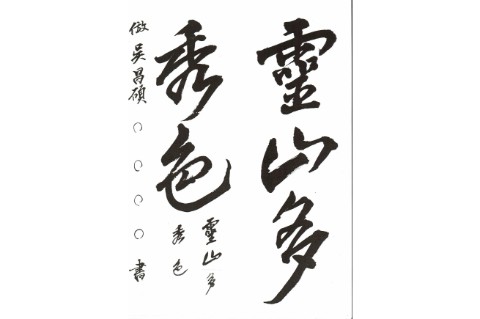 靈山多
秀色
靈山多
秀色
倣吳昌碩○○○○書